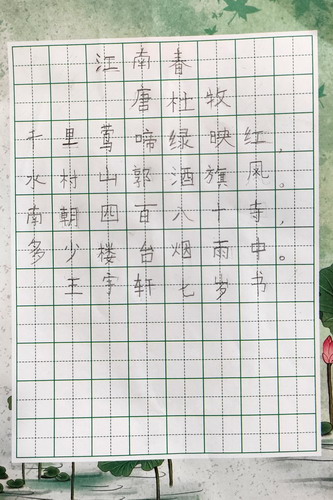 江南春
唐杜牧
千里莺啼绿映红，
水村山郭酒旗风。
南朝四百八十寺，
多少楼台烟雨中。
王宇轩七岁书